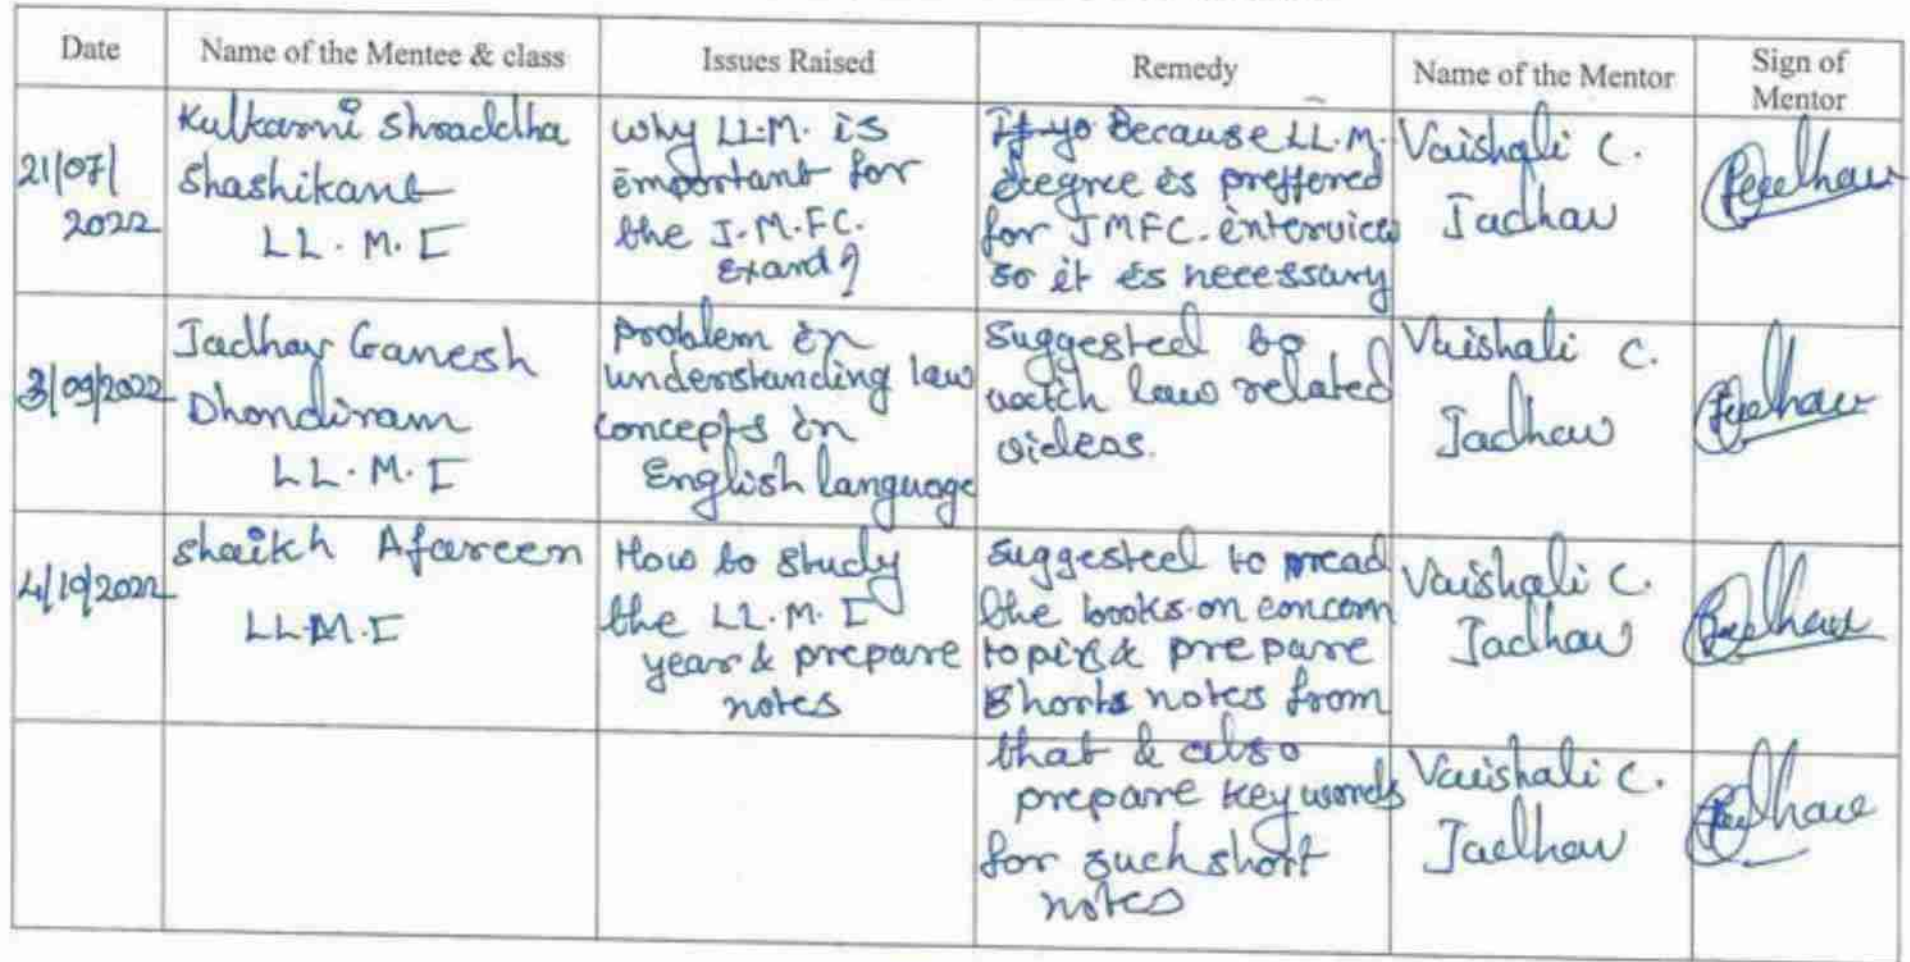 Date
Name of the Mentee & class
Issues Raised
Remedy
Name of the Mentor
Sign of
Mentor
21/07/
2022
Kulkarni Shraddha
Shashikant
LL.M.I
why LL.M. is
important for
the J.M.FC.
Because LL.M.
degree is preffered
for JMFC. interview
so it is necessary
Vaishali C.
Jadhav
3/09/2022
Jadhav Ganesh
Dhondiram
LL.M.I
problem in
understanding law
concepts in
English language
Suggested to
watch law related
videos.
Vaishali C.
Jadhav
4/10/2022
Shaikh Afareen
LL.M.I
How to study
the LL.M. I
year & prepare
notes
suggested to read
the books on concern
topics & prepare
Shorts notes from
Vaishali C.
Jadhav
that & also
prepare key words
for such short
notes
Vaishali C.
Jadhav